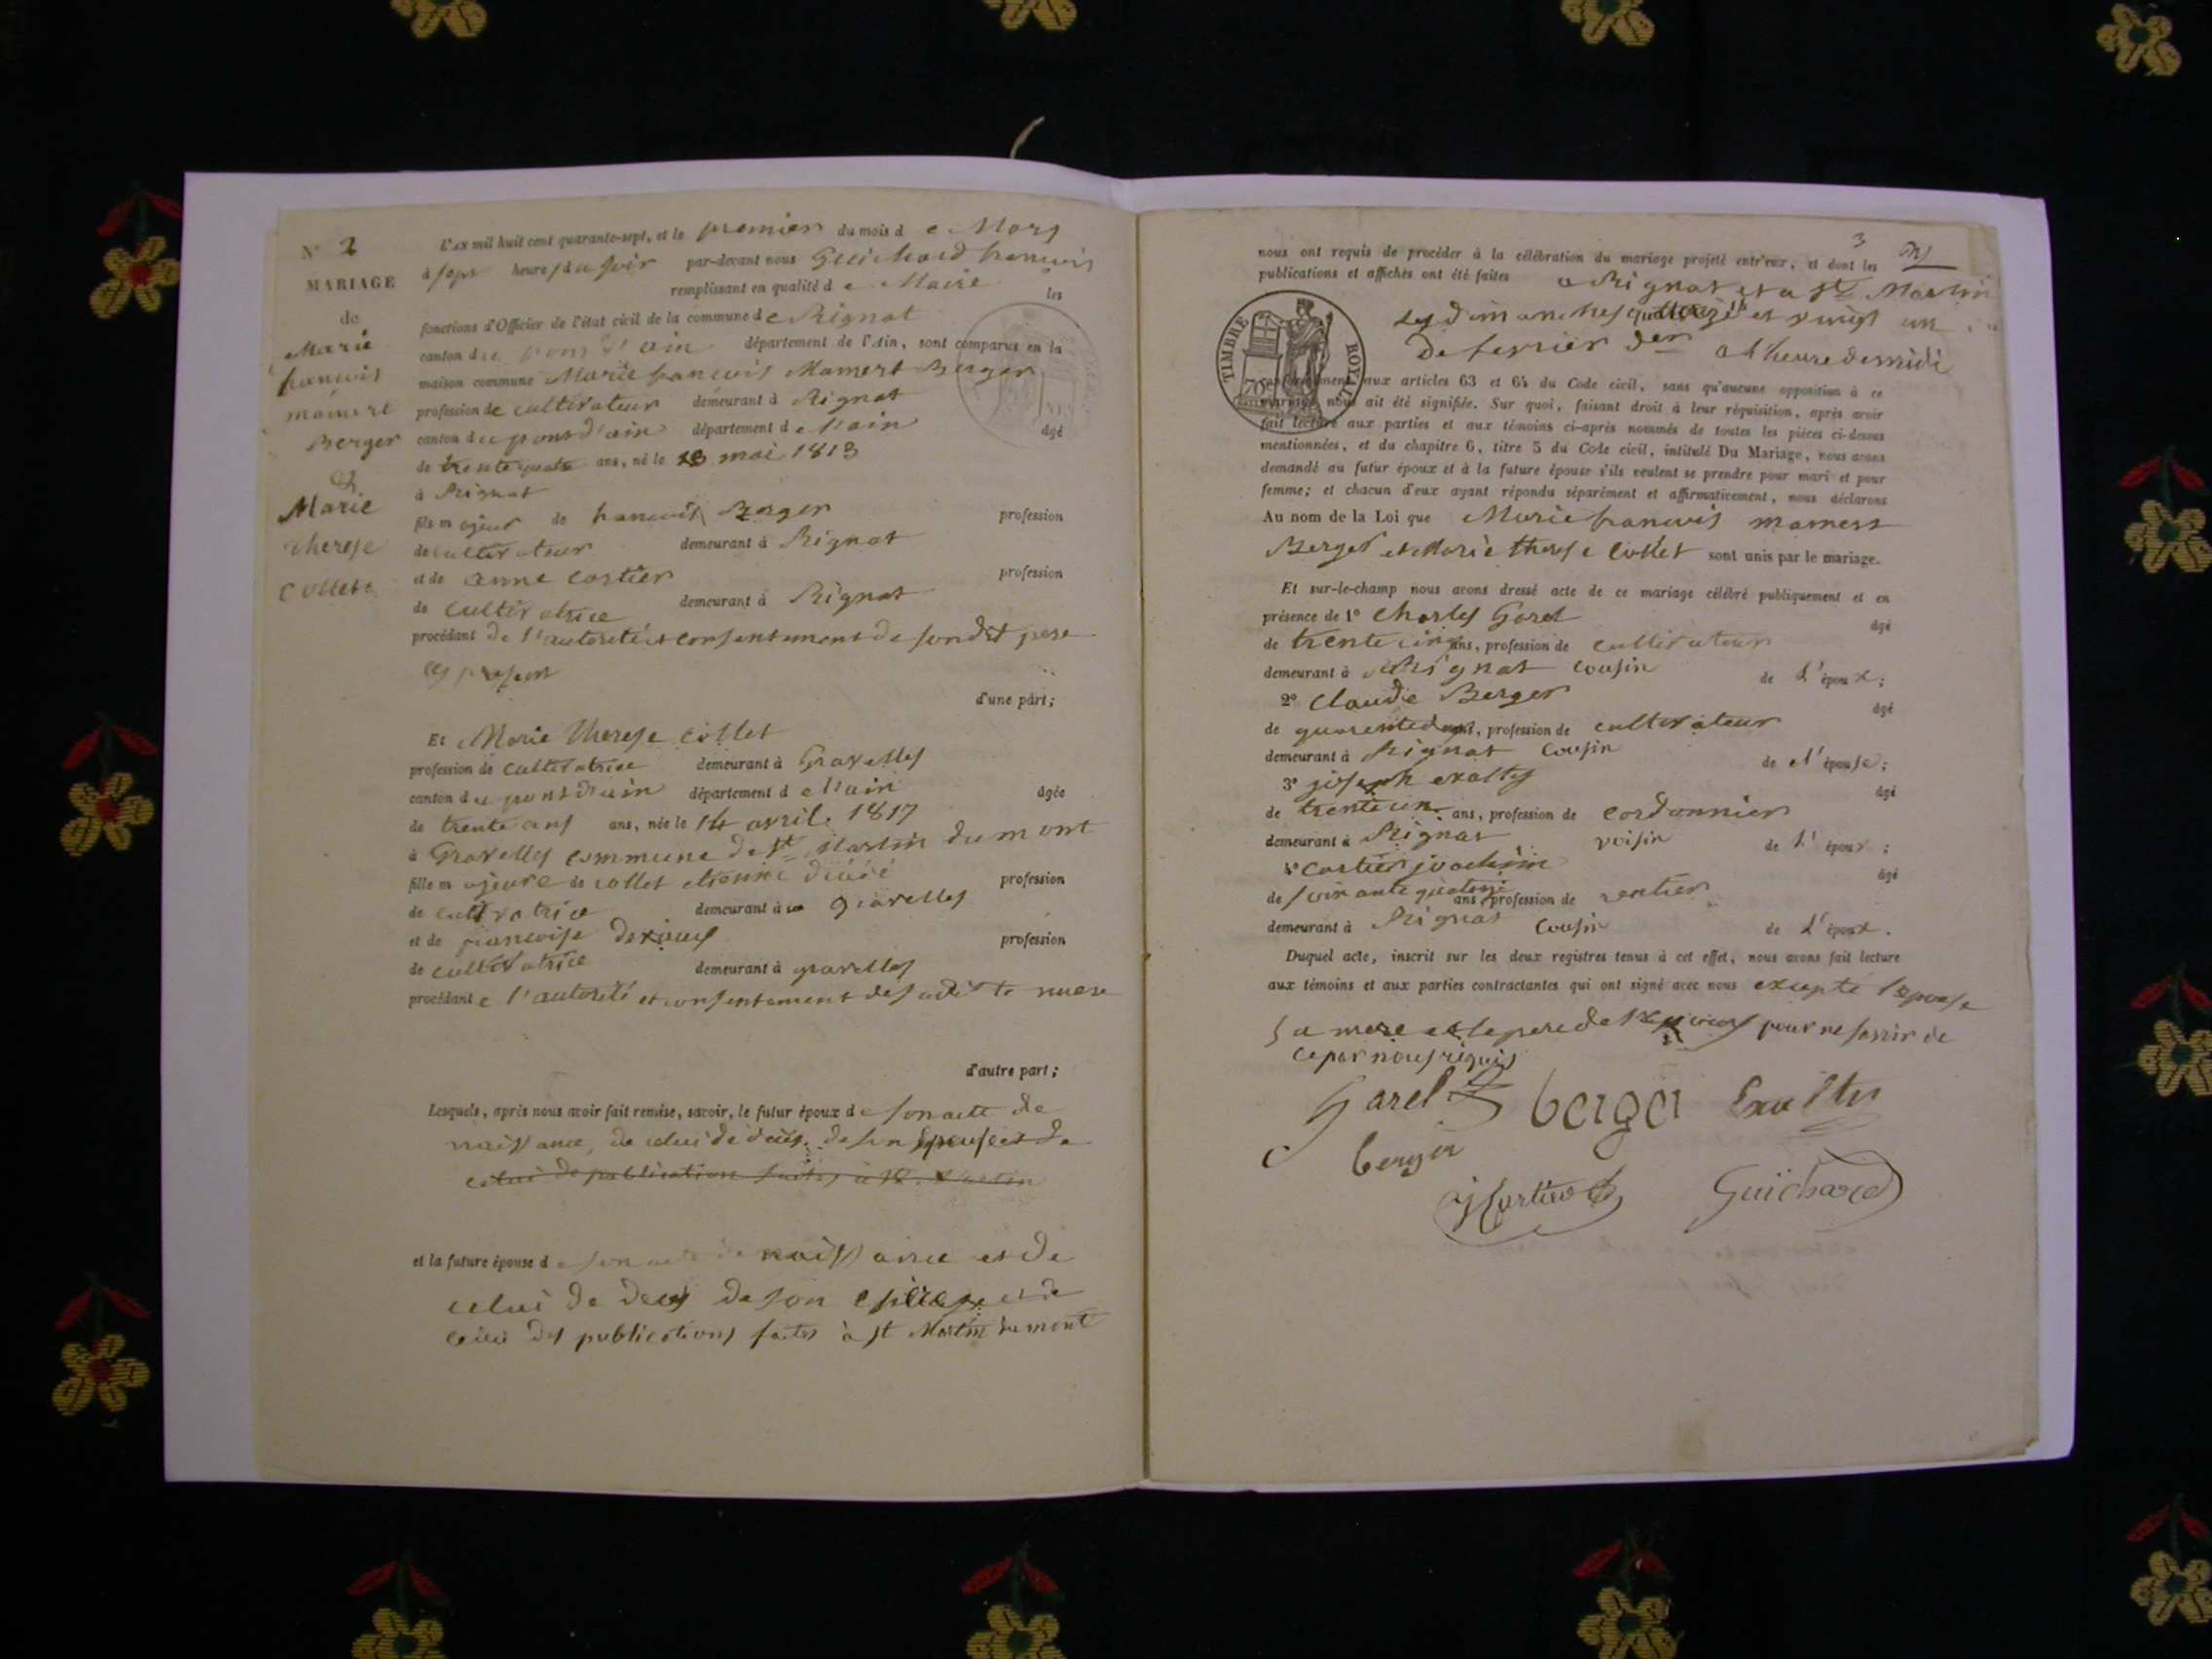 N° 2
MARIAGE
de
Marie
francois
mamert
Berger
&
Marie
therese
Collet
L'an mil huit cent quarante-sept, et le premier du mois de Mars
à sept heures du soir par-devant nous Guichard francois
remplissant en qualité de Maire les
fonctions d'Officier de l'état civil de la commune de Rignat
canton du pont d'ain département de l'Ain, sont comparus en la
maison commune Marie francois Mamert Berger
profession de cultivateur demeurant à Rignat
canton du pont d'ain département de l'ain âgé
de trente quatre ans, né le 13 mai 1813
à Rignat
fils majeur de francois Berger profession
de cultivateur demeurant à Rignat
et de anne cortier profession
de cultivatrice demeurant à Rignat
procédant de l'autorité et consentement de son dit pere
ici présent
d'une part;
Et Marie Therese Collet
profession de cultivatrice demeurant à Gravelles
canton du pont d'ain département de l'ain âgée
de trente ans ans, née le 14 avril 1817
à Gravelles commune de St Martin du mont
fille majeure de collet etienne décédé profession
de cultivatrice demeurant à gravelles
et de francoise profession
de cultivatrice demeurant à gravelles
procédant de l'autorité et consentement de sa dite mere
d'autre part;
Lesquels, après nous avoir fait remise, savoir, le futur époux de son acte de
naissance, de celui de décès de son épouse et de
celui de publication faites à St Martin
et la future épouse de son acte de naissance et de
celui de deces de son et de
celui des publications faites à St Martin du mont
3
nous ont requis de procéder à la célébration du mariage projeté entr'eux, et dont les
publications et affiches ont été faites a Rignat et a St Martin
les dimanches quatorze et vingt un
de fevrier der a l'heure de midi
TIMBRE ROYAL
70
conformément aux articles 63 et 64 du Code civil, sans qu'aucune opposition à ce
mariage nous ait été signifiée. Sur quoi, faisant droit à leur réquisition, après avoir
fait lecture aux parties et aux témoins ci-après nommés de toutes les pièces ci-dessus
mentionnées, et du chapitre 6, titre 5 du Code civil, intitulé Du Mariage, nous avons
demandé au futur époux et à la future épouse s'ils veulent se prendre pour mari et pour
femme; et chacun d'eux ayant répondu séparément et affirmativement, nous déclarons
Au nom de la Loi que Marie francois mamert
Berger et Marie therese Collet sont unis par le mariage.
Et sur-le-champ nous avons dressé acte de ce mariage célébré publiquement et en
présence de 1° Charles Garel âgé
de trente cinq ans, profession de cultivateur
demeurant à Rignat cousin de l'époux;
2° Claude Berger âgé
de quarente deux, profession de cultivateur
demeurant à Rignat Cousin de l'épouse;
3° joseph exaltes âgé
de trente un ans, profession de cordonnier
demeurant à Rignat voisin de l'époux;
4° Cortier joachim âgé
de soixante quatorze ans, profession de rentier
demeurant à Rignat Cousin de l'époux.
Duquel acte, inscrit sur les deux registres tenus à cet effet, nous avons fait lecture
aux témoins et aux parties contractantes qui ont signé avec nous excepté l'epouse
sa mere et le pere de l'epoux pour ne savoir de
ce par nous requis
Garel berger
berger
Cortier Guichard